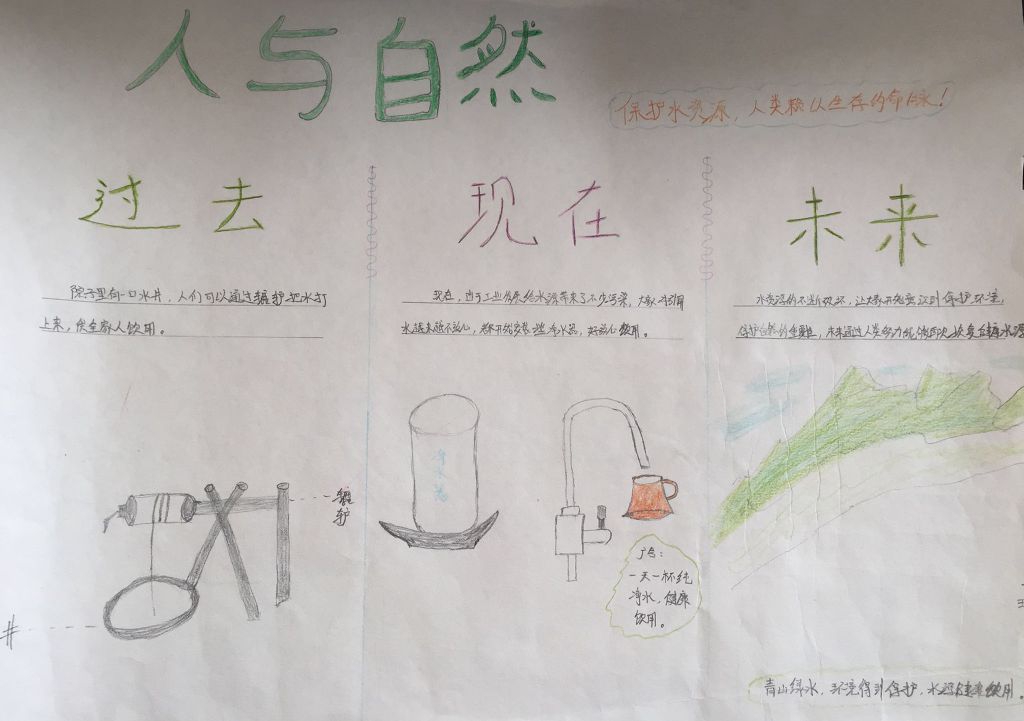 人与自然
保护水资源,人类赖以生存的命脉!
过去
院子里有一口水井,人们可以通过辘轳把水打
上来,供全家人饮用。
现在
现在,由于工业发展给水源带来了不少污染,大家
水越来越不放心,都开始安装 净水器,好放心饮用。
未来
水资源的不断破坏,让大家开始意识到保护环境,
保护自然的重要性,未来通过人类努力 恢复 水源
净水器
辘
轳
井
广告:
一天一杯纯
净水,健康
饮用。
青山绿水,环境得到保护,水源 饮用。